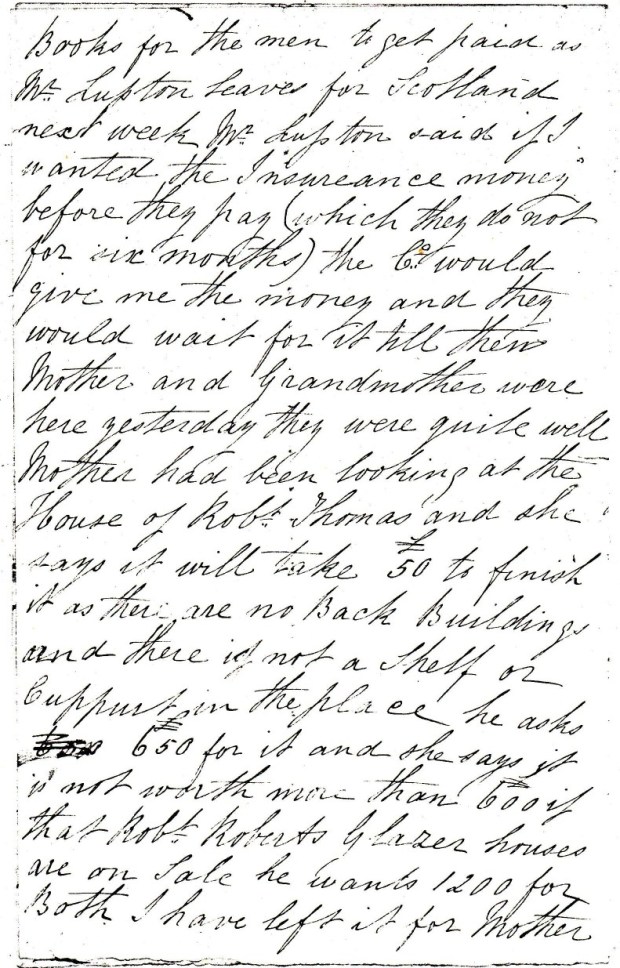 Books for the men to get paid as
Mr. Lupton leaves for Scotland
next week Mr. Lupton said if I
wanted the Insureance money
before they pay (which they do not
for six months) the Co. would
give me the money and they
would wait for it till then
Mother and Grandmother were
here yesterday they were quite well
Mother had been looking at the
House of Robt. Thomas and she
says it will take £50 to finish
it as there are no Back Buildings
and there is not a Shelf or
Cuppurt in the place he asks
£650 for it and she says it
is not worth more than £600 if
that Robt. Roberts Glazer houses
are on Sale he wants 1200 for
Both I have left it for Mother